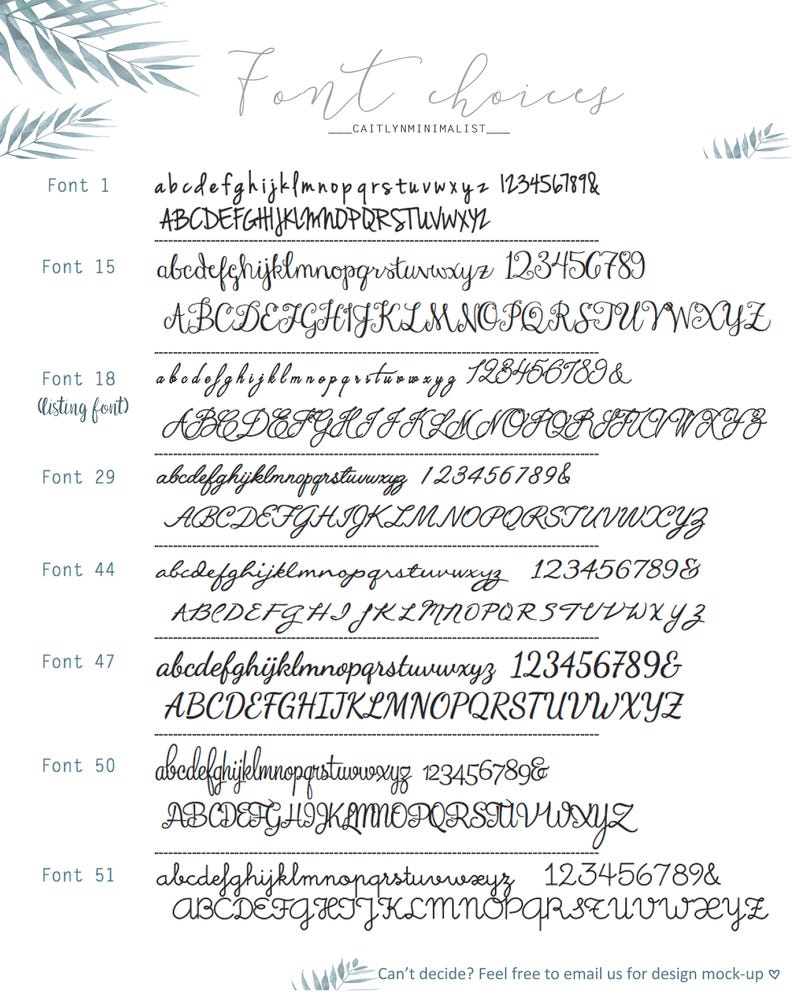 Font choices
___CAITLYNMINIMALIST___
Font 1
abcdefghijklmnopqrstuvwxyz 123456789&
ABCDEFGHIJKLMNOPQRSTUVWXYZ
Font 15
abcdefghijklmnopqrstuvwxyz 123456789
ABCDEFGHIJKLMNOPQRSTUVWXYZ
Font 18
(listing font)
abcdefghijklmnopqrstuvwxyz 123456789&
ABCDEFGHIJKLMNOPQRSTUVWXYZ
Font 29
abcdefghijklmnopqrstuvwxyz 123456789&
ABCDEFGHIJKLMNOPQRSTUVWXYZ
Font 44
abcdefghijklmnopqrstuvwxyz 123456789&
ABCDEFGHIJKLMNOPQRSTUVWXYZ
Font 47
abcdefghijklmnopqrstuvwxyz 123456789&
ABCDEFGHIJKLMNOPQRSTUVWXYZ
Font 50
abcdefghijklmnopqrstuvwxyz 123456789&
ABCDEFGHIJKLMNOPQRSTUVWXYZ
Font 51
abcdefghijklmnopqrstuvwxyz 123456789&
ABCDEFGHIJKLMNOPQRSTUVWXYZ
Can't decide? Feel free to email us for design mock-up ♡